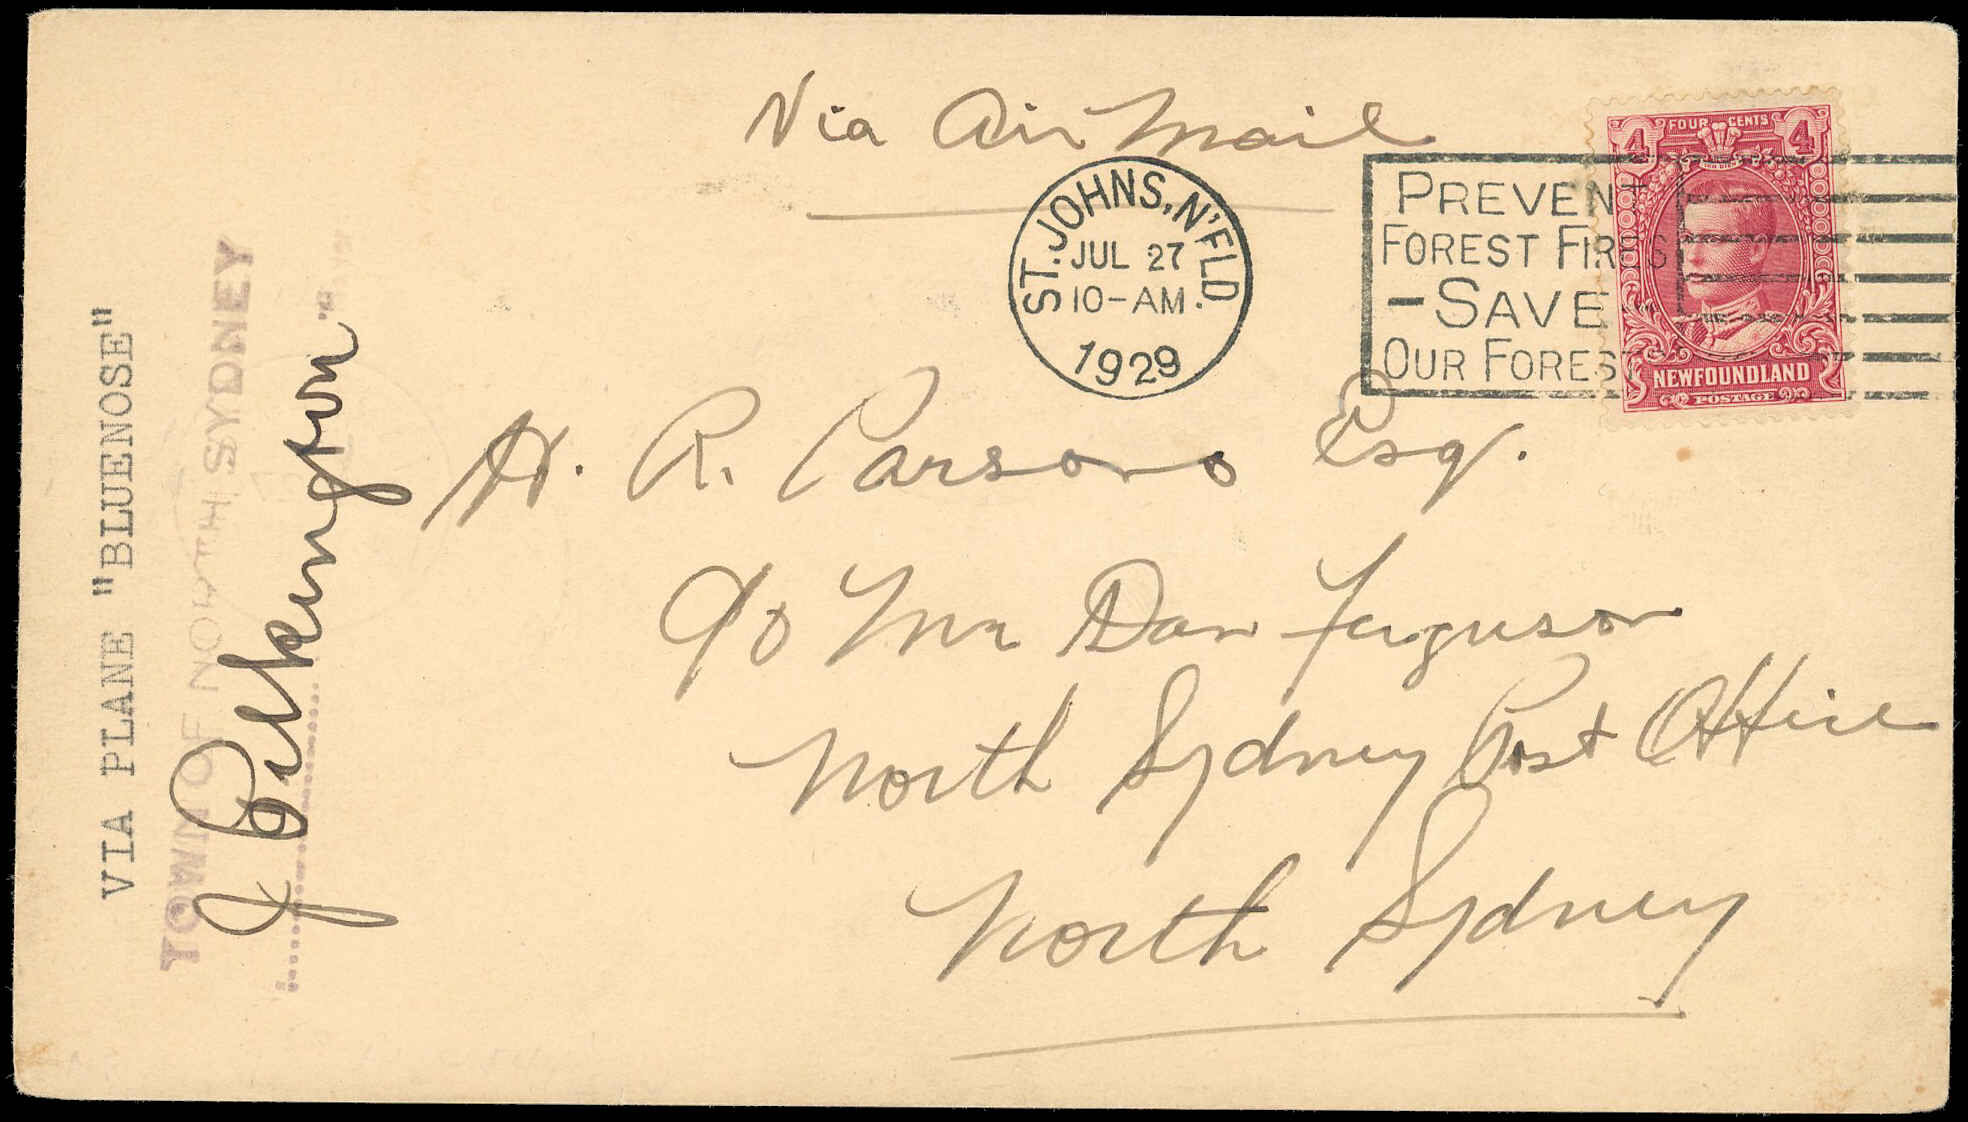 Via Air Mail
4 FOUR CENTS 4
NEWFOUNDLAND
POSTAGE
ST. JOHNS, N'FLD.
JUL 27
10-AM.
1929
PREVENT
FOREST FIRES
-SAVE
OUR FORESTS
H. R. Parsons Esq.
c/o Mr Dan Ferguson
North Sydney Post Office
North Sydney
VIA PLANE "BLUENOSE"
TOWN OF NORTH SYDNEY
J Pilkington